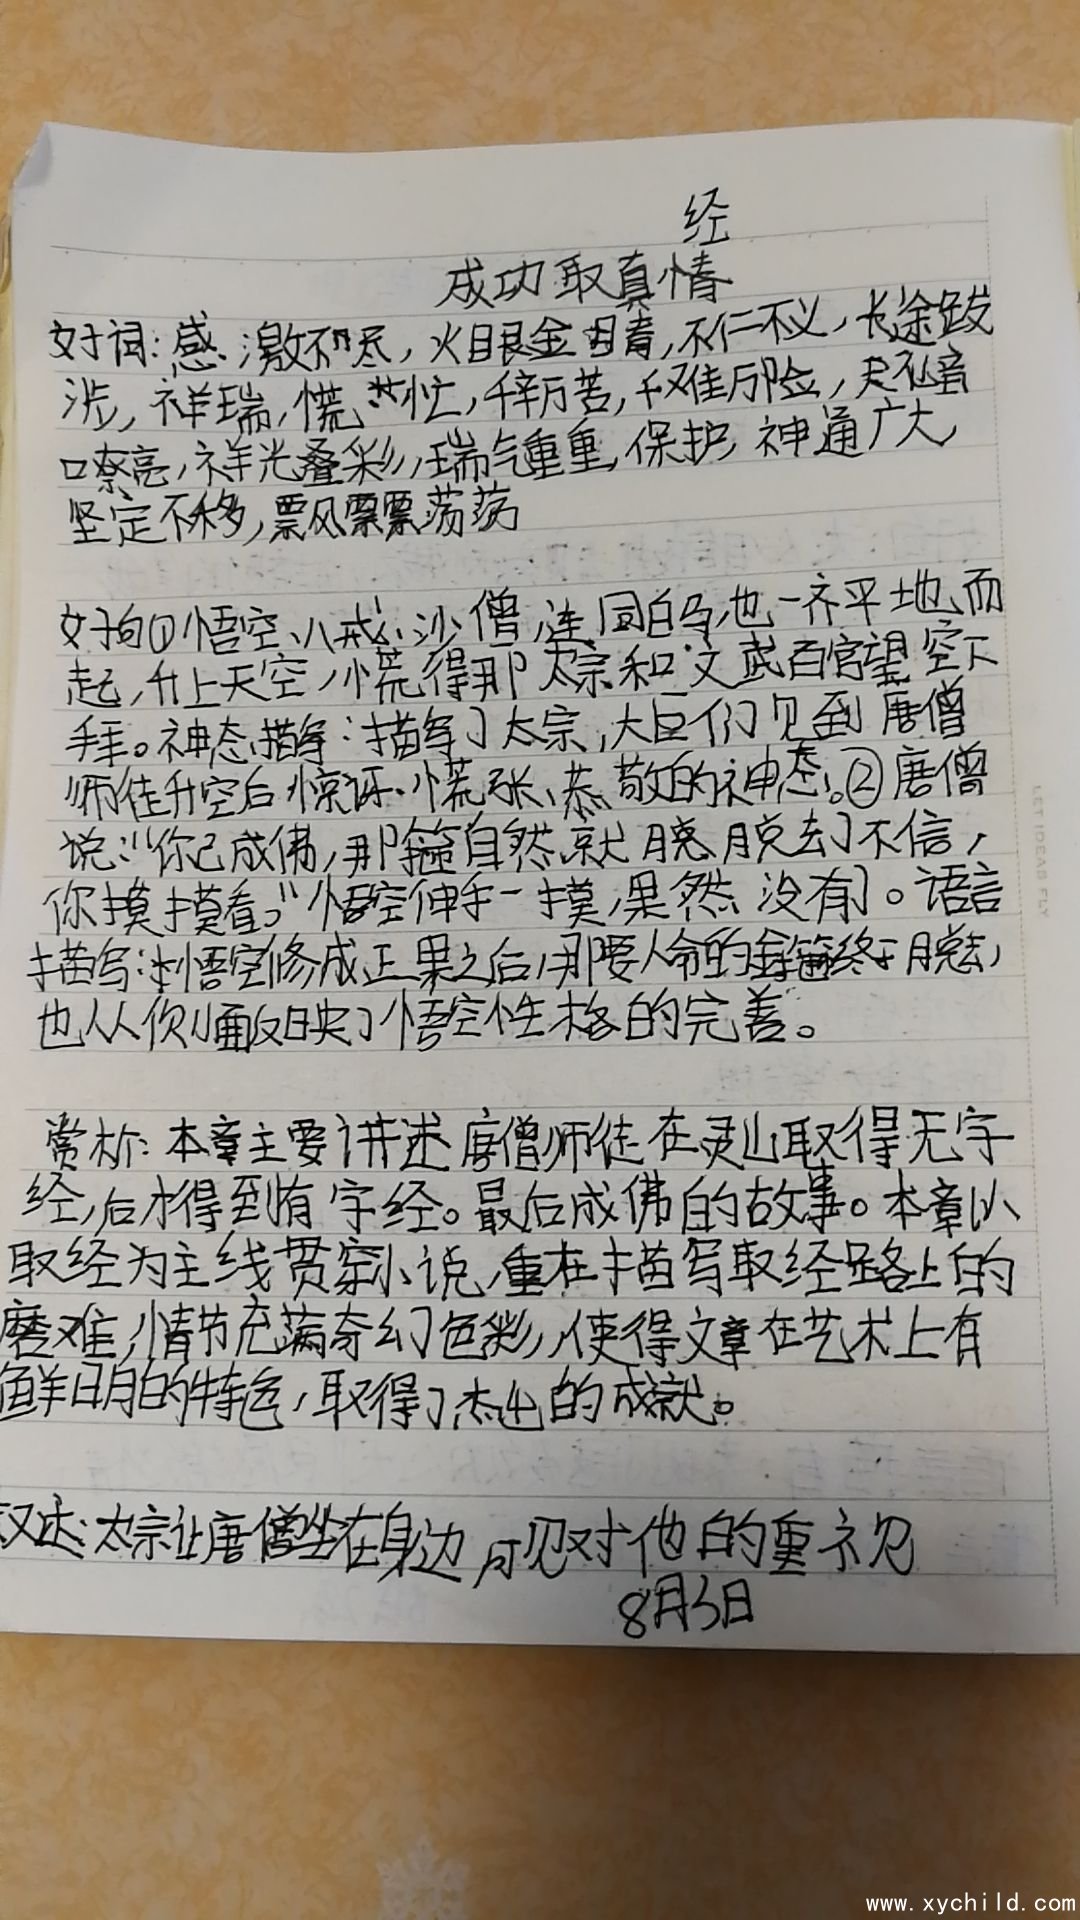 经
成功取真情
好词:感激不尽,火眼金睛,不仁不义,长途跋
涉,祥瑞,慌忙,千辛万苦,千难万险,
嘹亮,祥光叠彩,瑞气重重,保护,神通广大,
坚定不移,飘飘荡荡
好句①悟空、八戒、沙僧,连同白马,也一齐平地而
起,升上天空,慌得那太宗和文武百官望空下
拜。神态描写:描写了太宗,大臣们见到唐僧
师徒升空后惊讶、慌张、恭敬的神态。②唐僧
说:“你已成佛,那箍自然就脱去了不信,
你摸摸看。”悟空伸手一摸,果然没有了。语言
描写:悟空修成正果之后,那要人命的金箍终于脱去,
也从侧面反映了悟空性格的完善。
赏析:本章主要讲述唐僧师徒在灵山取得无字
经,后才得到有字经。最后成佛的故事。本章以
取经为主线贯穿小说,重在描写取经路上的
磨难,情节充满奇幻色彩,使得文章在艺术上有
鲜明的特色,取得了杰出的成就。
叙述:太宗让唐僧坐在身边,可见对他的重视
8月3日
LET IDEAS FLY
www.xychild.com